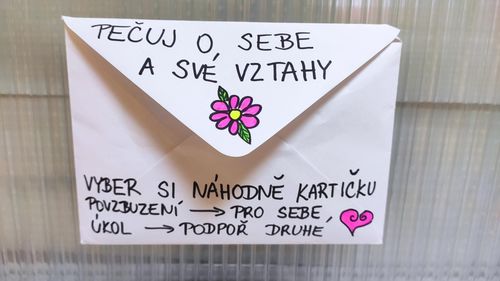 PEČUJ O SEBE
A SVÉ VZTAHY
VYBER SI NÁHODNĚ KARTIČKU
POVZBUZENÍ → PRO SEBE,
ÚKOL → PODPOŘ DRUHÉ